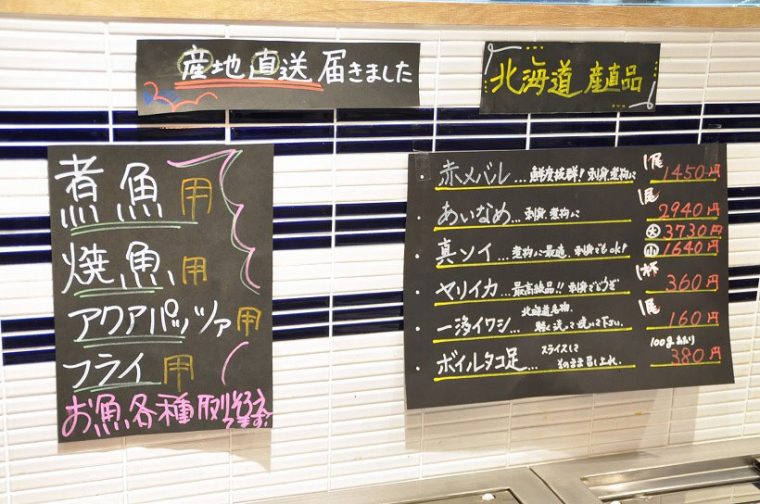 産地直送 届きました
北海道 産直品
煮魚用
焼魚用
アクアパッツァ用
フライ用
お魚各種取りそろえてます!
・赤メバル… 鮮度抜群! 刺身、煮物に 1尾 1450円
・あいなめ… 刺身、煮物に 1尾 2940円
大 3730円
・真ソイ… 煮物に最適、刺身でもok! 小 1640円
・ヤリイカ… 最高級品!! 刺身でどうぞ 1杯 360円
・一汐イワシ… 北海道名物、軽く洗って焼いて下さい。 1尾 160円
・ボイルタコ足… スライスしてそのまま召し上れ。 100gあたり 380円